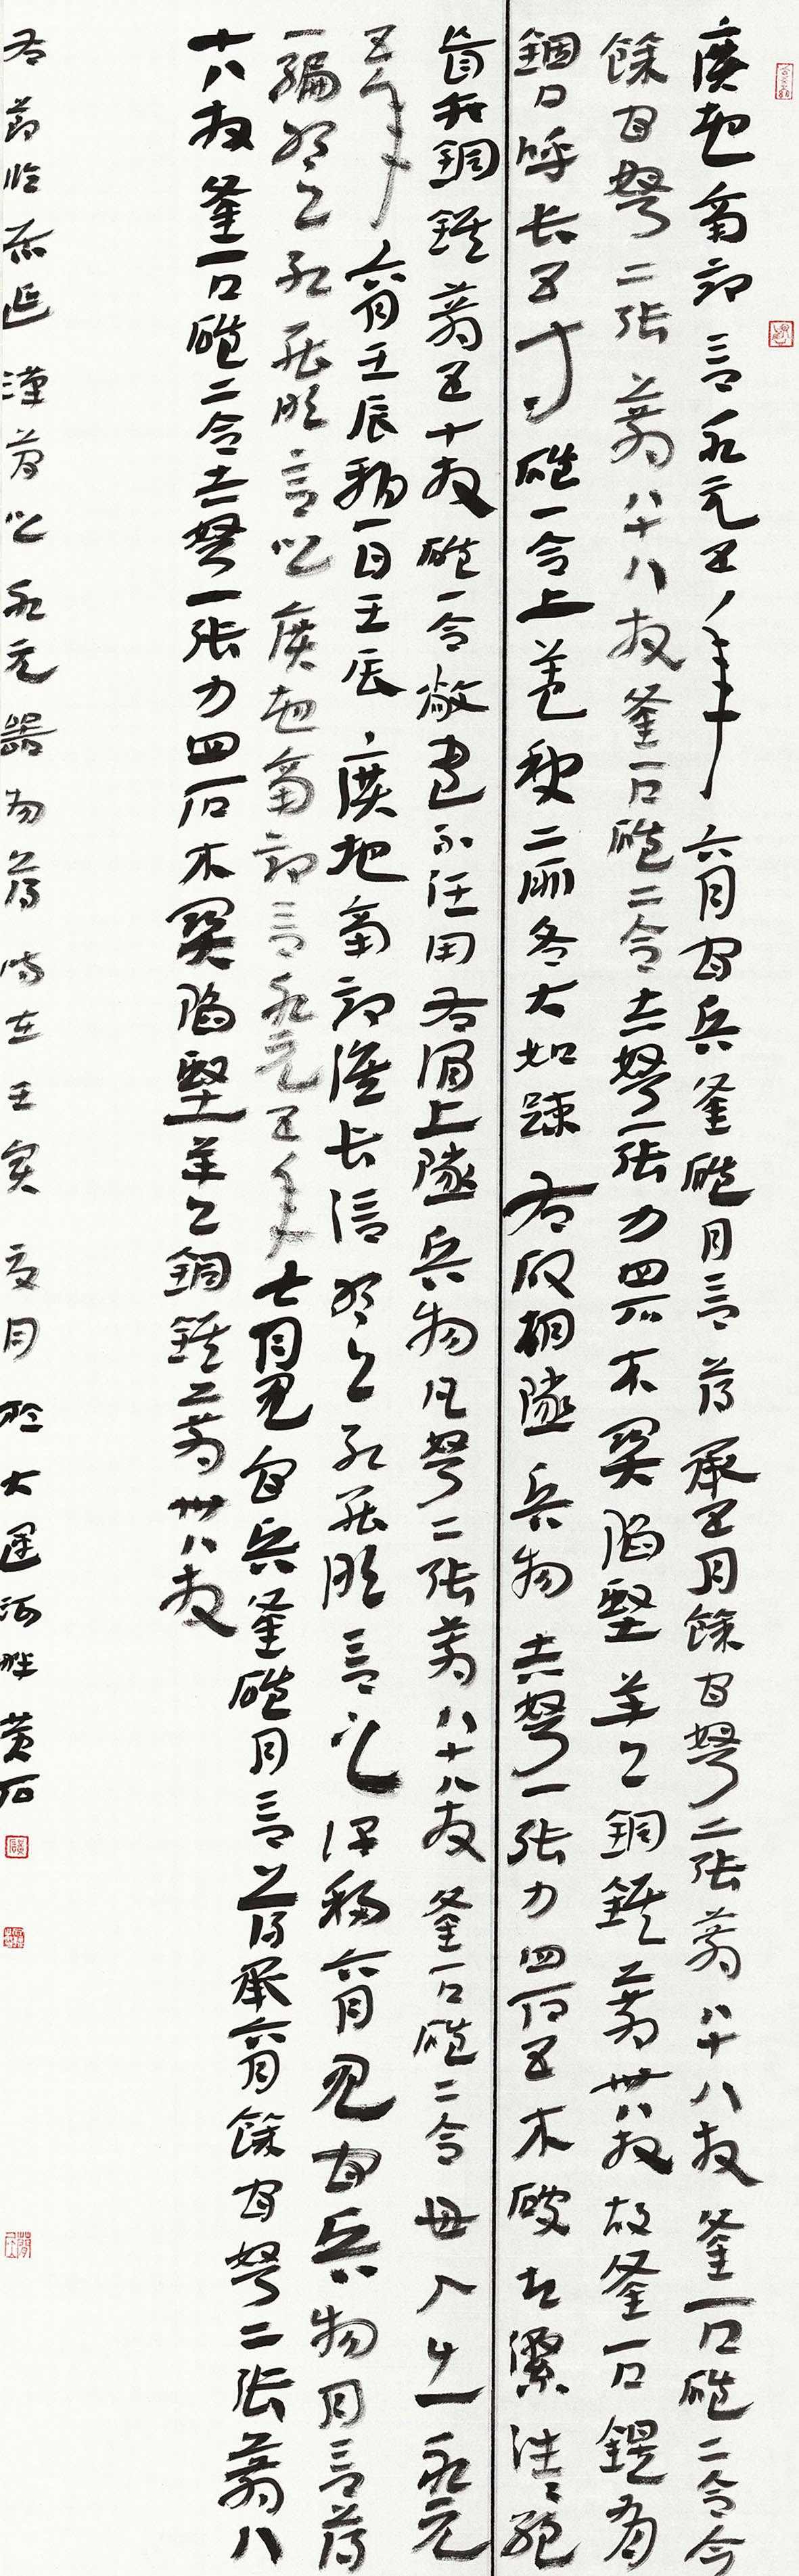 廣地南部言永元五年六月官兵釜磑月言簿承五月餘官弩二張箭八十八枚釜一口磑二合今
餘官弩二張箭八十八枚釜一口磑二合赤弩一張力四石木關陷堅羊頭銅鍭箭卌八枚故釜一口鍉有
錮口呼長五寸磑一合上蓋缺二所各大如踈右破胡隧兵物赤弩一張力四石五木破起繳往往絕
盲矢銅鍭箭五十枚磑一合敝盡不任用右澗上隧兵物凡弩二張箭八十八枚釜一口磑二合毋入出永元
五年六月壬辰朔一日壬辰廣地南部候長信叩頭死罪敢言之謹移六月見官兵物月言簿
一編叩頭死罪敢言之廣地南部言永元五年七月見官兵釜磑月言簿承六月餘官弩二張箭八
十八枚釜一口磑二合赤弩一張力四石木關陷堅羊頭銅鍭箭卌八枚
右節臨居延漢簡之永元器物簿時在壬寅夏月於大運河畔黃石